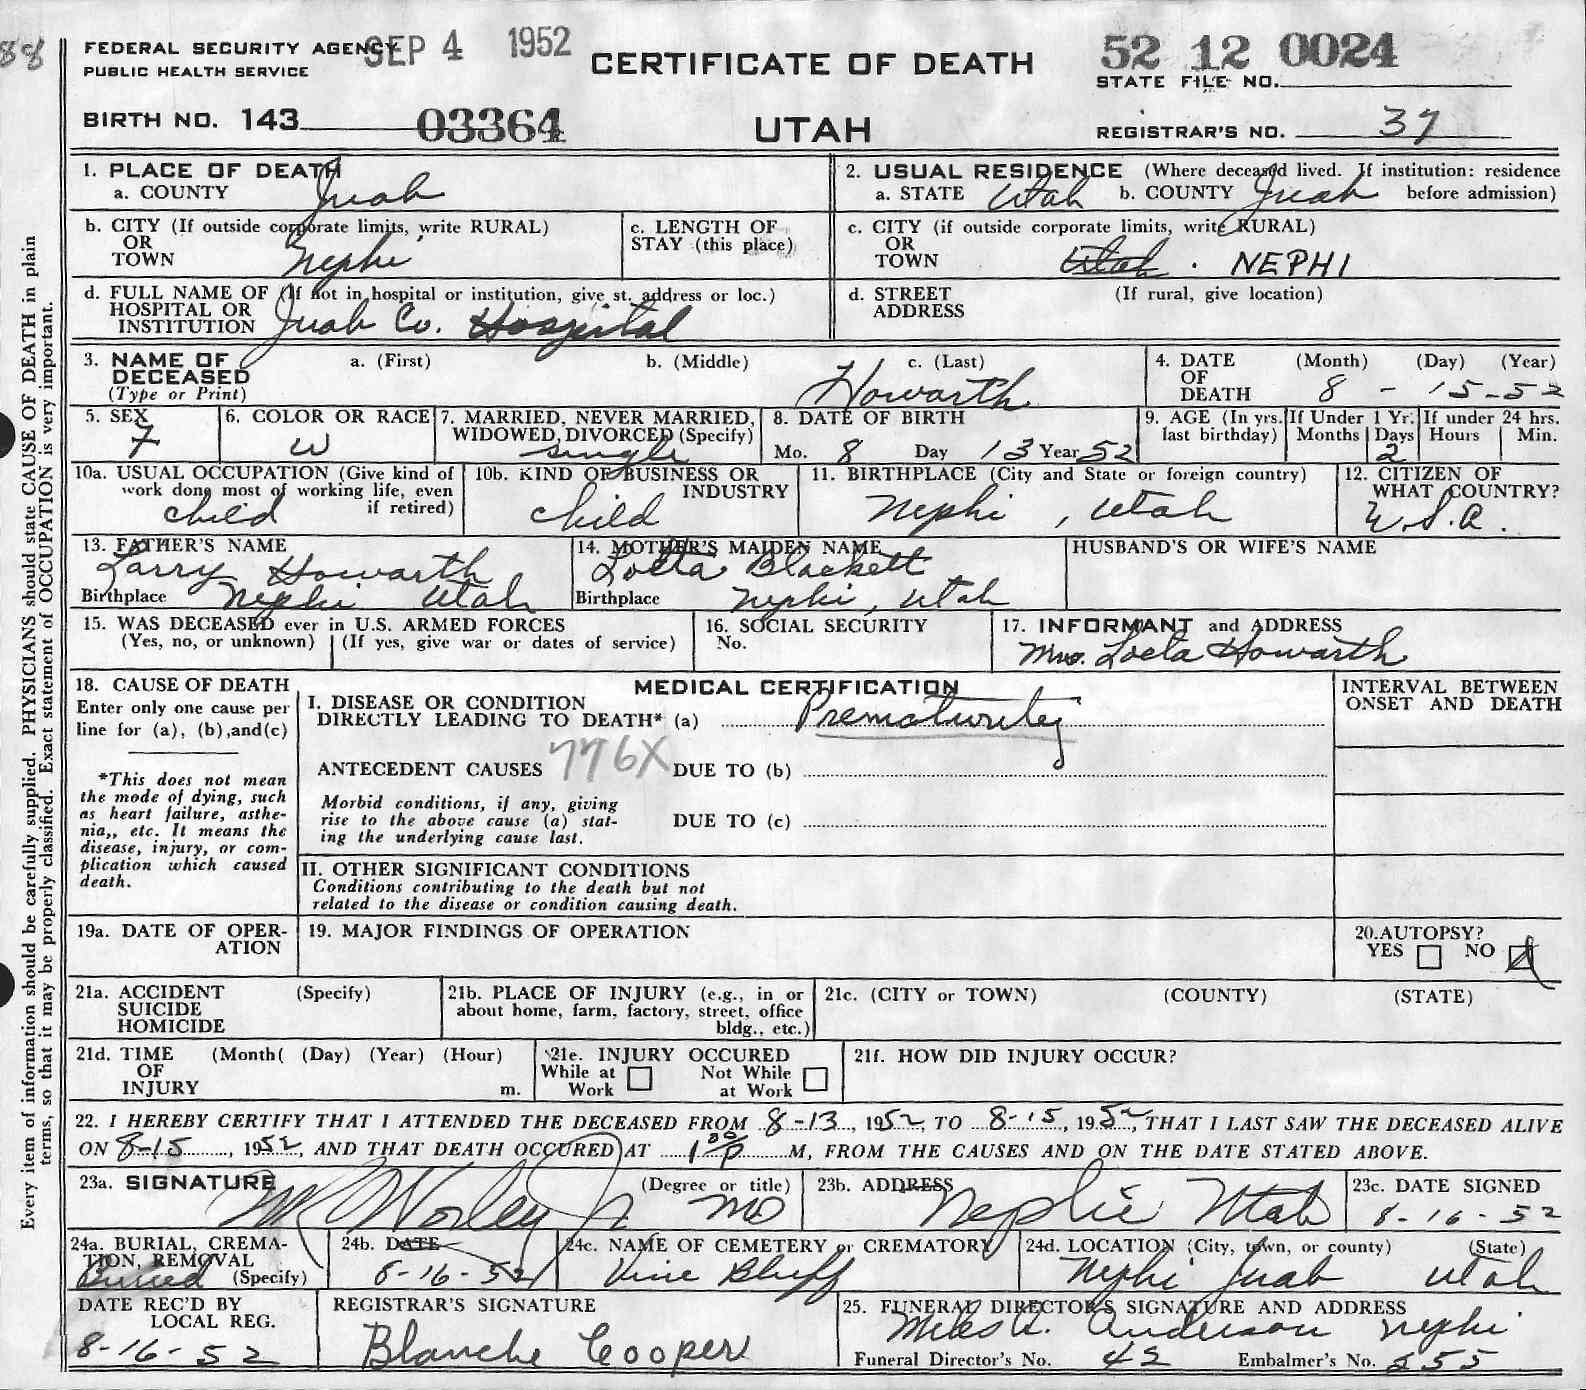 88
FEDERAL SECURITY AGENCY SEP 4 1952
PUBLIC HEALTH SERVICE
CERTIFICATE OF DEATH
52 12 0024
STATE FILE NO.
BIRTH NO. 143 03364
UTAH
REGISTRAR'S NO. 37
1. PLACE OF DEATH
a. COUNTY Juab
2. USUAL RESIDENCE (Where deceased lived. If institution: residence
a. STATE Utah b. COUNTY Juab before admission)
b. CITY (If outside corporate limits, write RURAL)
OR
TOWN Nephi
c. LENGTH OF
STAY (this place)
c. CITY (if outside corporate limits, write RURAL)
OR
TOWN Utah . NEPHI
d. FULL NAME OF (If not in hospital or institution, give st. address or loc.)
HOSPITAL OR
INSTITUTION Juab Co. Hospital
d. STREET (If rural, give location)
ADDRESS
3. NAME OF
DECEASED
(Type or Print)
a. (First) b. (Middle) c. (Last)
Howarth
4. DATE (Month) (Day) (Year)
OF
DEATH 8 - 15-52
5. SEX
F
6. COLOR OR RACE
W
7. MARRIED, NEVER MARRIED,
WIDOWED, DIVORCED (Specify)
single
8. DATE OF BIRTH
Mo. 8 Day 13 Year 52
9. AGE (In yrs. last birthday)
If Under 1 Yr. Months Days
2
If under 24 hrs. Hours Min.
10a. USUAL OCCUPATION (Give kind of
work done most of working life, even
if retired)
child
10b. KIND OF BUSINESS OR
INDUSTRY
child
11. BIRTHPLACE (City and State or foreign country)
Nephi, Utah
12. CITIZEN OF
WHAT COUNTRY?
U.S.A.
13. FATHER'S NAME
Larry Howarth
Birthplace Nephi Utah
14. MOTHER'S MAIDEN NAME
Loeta Blackett
Birthplace Nephi, Utah
HUSBAND'S OR WIFE'S NAME
15. WAS DECEASED ever in U.S. ARMED FORCES
(Yes, no, or unknown) (If yes, give war or dates of service)
16. SOCIAL SECURITY
No.
17. INFORMANT and ADDRESS
Mrs. Loeta Howarth
18. CAUSE OF DEATH
Enter only one cause per
line for (a), (b), and (c)
*This does not mean
the mode of dying, such
as heart failure, asthe-
nia,, etc. It means the
disease, injury, or com-
plication which caused
death.
MEDICAL CERTIFICATION
I. DISEASE OR CONDITION
DIRECTLY LEADING TO DEATH* (a) Prematurity
ANTECEDENT CAUSES 776X DUE TO (b)
Morbid conditions, if any, giving
rise to the above cause (a) stat-
ing the underlying cause last.
DUE TO (c)
II. OTHER SIGNIFICANT CONDITIONS
Conditions contributing to the death but not
related to the disease or condition causing death.
INTERVAL BETWEEN
ONSET AND DEATH
19a. DATE OF OPER-
ATION
19. MAJOR FINDINGS OF OPERATION
20. AUTOPSY?
YES NO
21a. ACCIDENT (Specify)
SUICIDE
HOMICIDE
21b. PLACE OF INJURY (e.g., in or
about home, farm, factory, street, office
bldg., etc.)
21c. (CITY or TOWN) (COUNTY) (STATE)
21d. TIME (Month( (Day) (Year) (Hour)
OF
INJURY m.
21e. INJURY OCCURED
While at Work Not While at Work
21f. HOW DID INJURY OCCUR?
22. I HEREBY CERTIFY THAT I ATTENDED THE DECEASED FROM 8-13, 1952, TO 8-15, 1952, THAT I LAST SAW THE DECEASED ALIVE
ON 8-15, 1952, AND THAT DEATH OCCURED AT 1 P M, FROM THE CAUSES AND ON THE DATE STATED ABOVE.
23a. SIGNATURE (Degree or title)
Worley Jr MD
23b. ADDRESS
Nephi Utah
23c. DATE SIGNED
8-16-52
24a. BURIAL, CREMA-
TION, REMOVAL
(Specify)
Buried
24b. DATE
8-16-52
24c. NAME OF CEMETERY or CREMATORY
Vine Bluff
24d. LOCATION (City, town, or county) (State)
Nephi Juab Utah
DATE REC'D BY
LOCAL REG.
8-16-52
REGISTRAR'S SIGNATURE
Blanche Cooper
25. FUNERAL DIRECTOR'S SIGNATURE AND ADDRESS
Anderson Nephi
Funeral Director's No. 42 Embalmer's No. 255
Every item of information should be carefully supplied. PHYSICIANS should state CAUSE OF DEATH in plain
terms, so that it may be properly classified. Exact statement of OCCUPATION is very important.